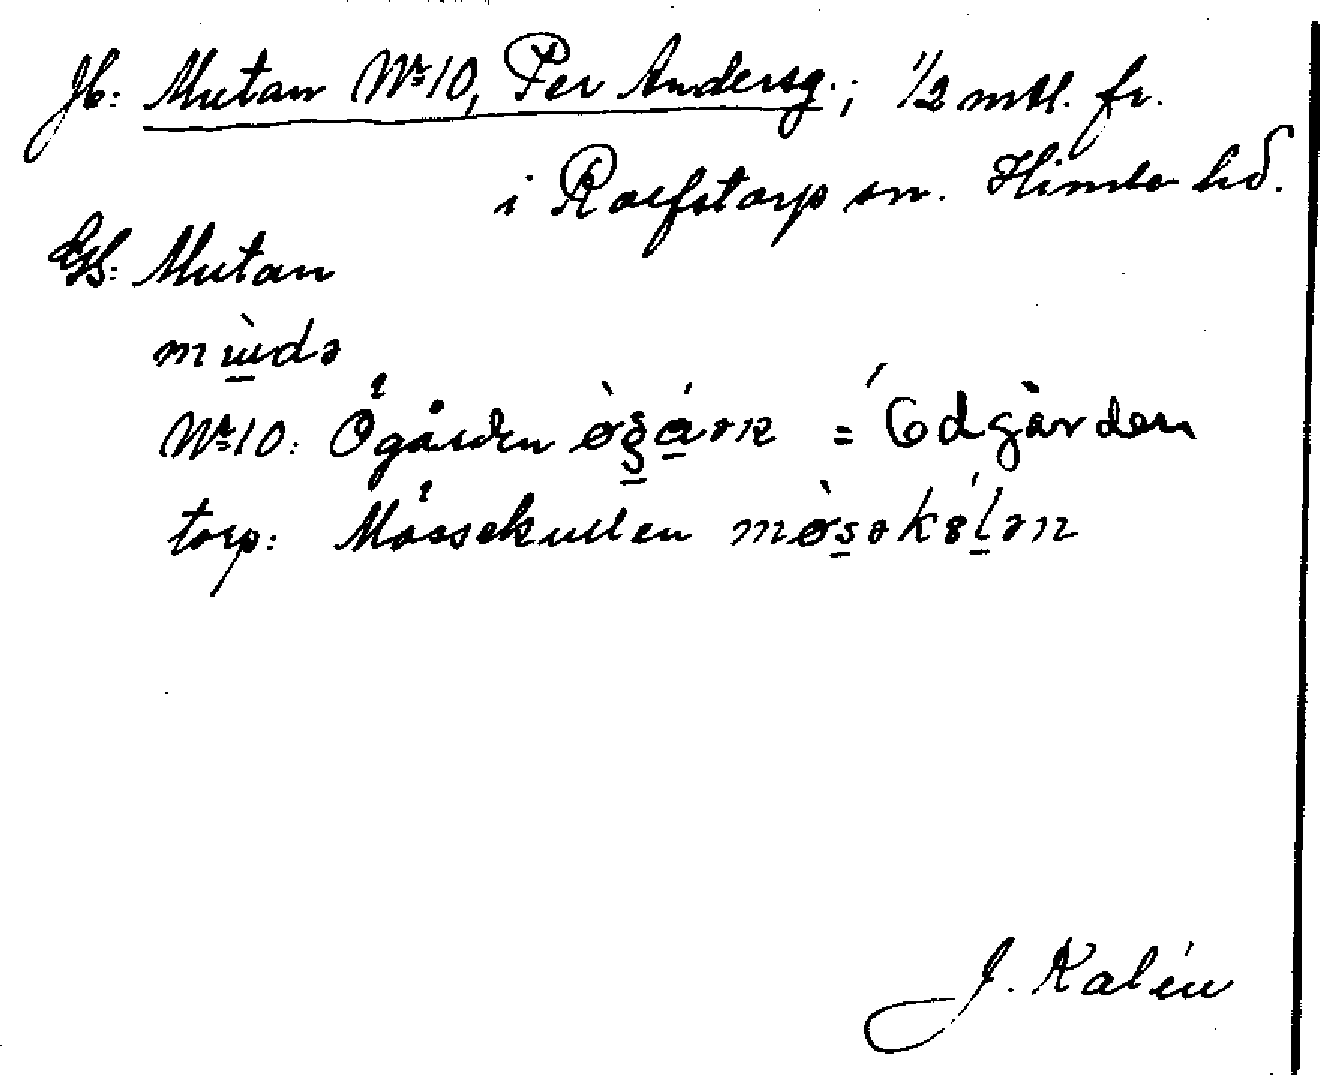 Jb: Mutan No 10, Per Andersg.; 1/2 mtl. fr.
i Rolfstorp sn. Himle hd.
Gs: Mutan
mɯ̀də
No 10: Ögården = Ödgården
torp: Mössekullen
J. Kalén